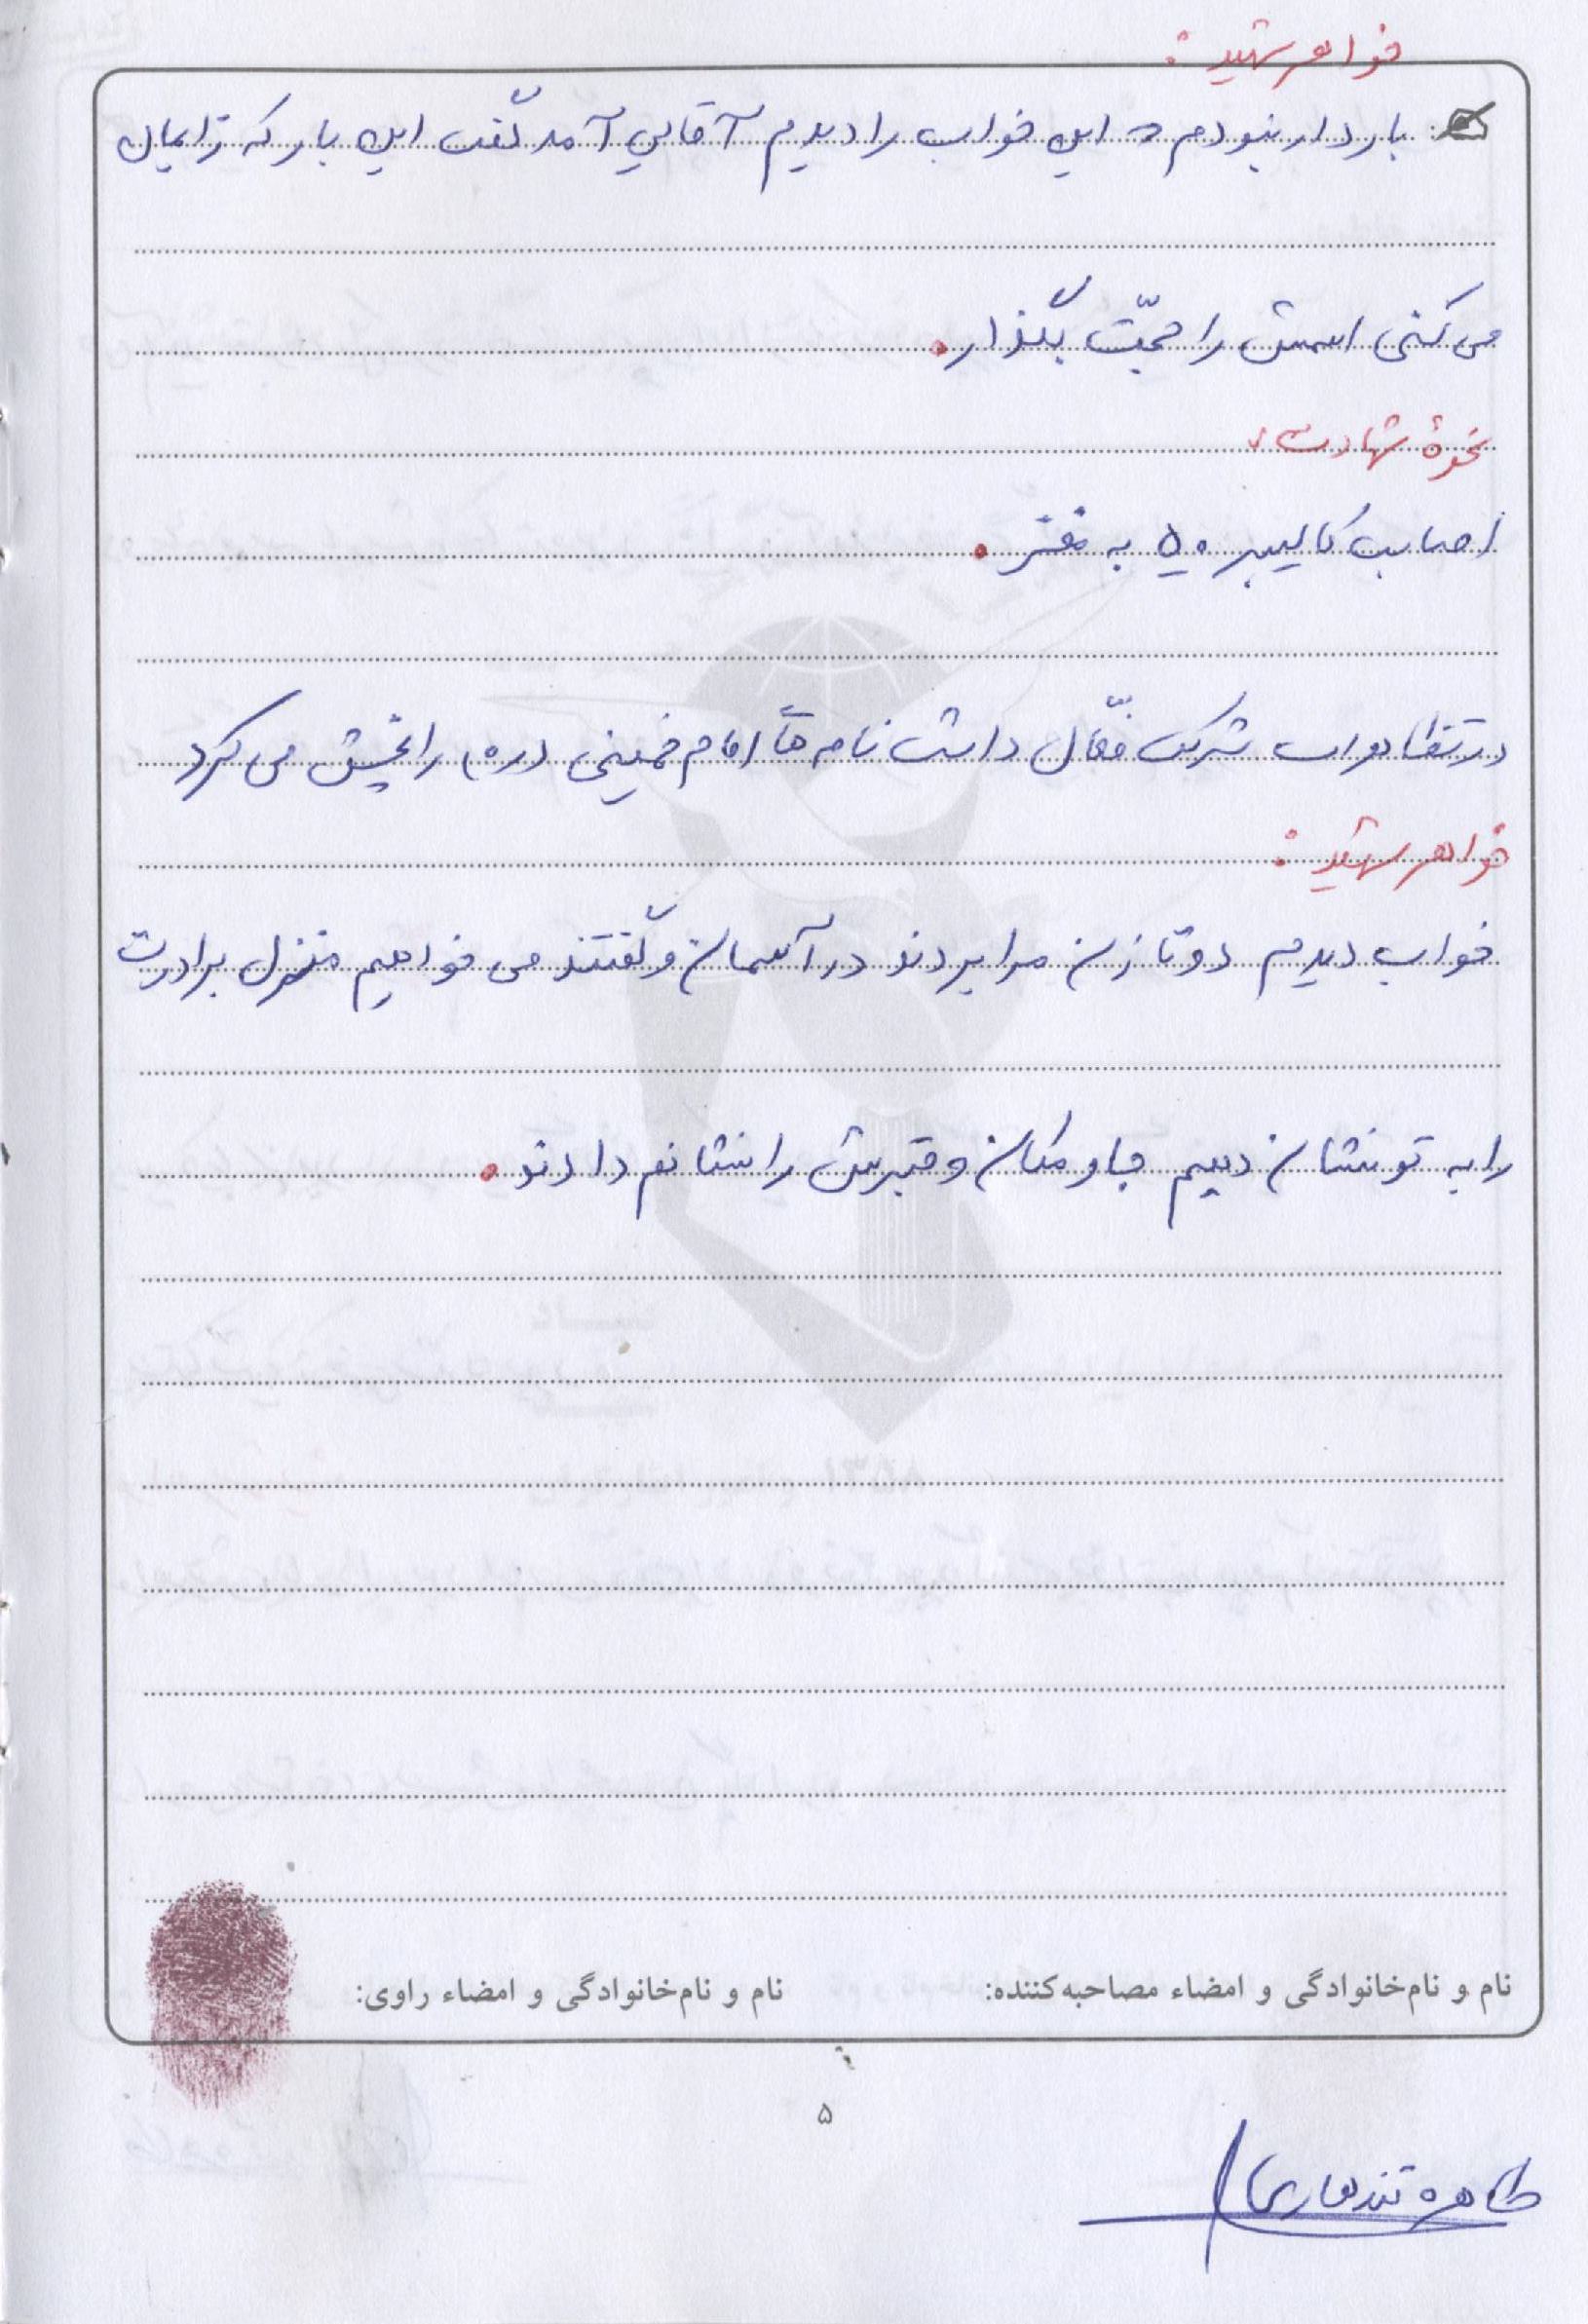 خواهر شهید :
باردار نبودم و این خواب را دیدم آقایی آمد گفت این بار که زایمان
می کنی اسمش را حجّت بگذار.
نحوهٔ شهادت :
اصابت کالیبر ۵۰ به مغز.
در تظاهرات شرکت فعّال داشت نامه های امام خمینی (ره) را پخش می کرد
خواهر شهید :
خواب دیدم دو تا زن مرا بردند در آسمان و گفتند می خواهیم منزل برادرت
را به تو نشان دهیم جا و مکان و قبرش را نشانم دادند.
نام و نام‌خانوادگی و امضاء مصاحبه‌کننده:
نام و نام‌خانوادگی و امضاء راوی:
۵
طاهره